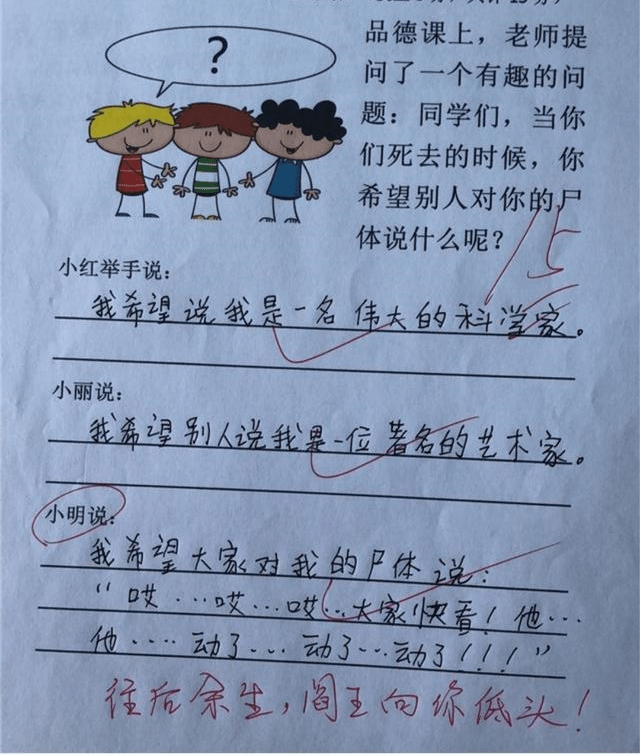 ?
品德课上，老师提
问了一个有趣的问
题：同学们，当你
们死去的时候，你
希望别人对你的尸
体说什么呢？
15
小红举手说：
我希望说我是一名伟大的科学家。
小丽说：
我希望别人说我是一位著名的艺术家。
小明说：
我希望大家对我的尸体说：
“哎…哎…哎…大家快看！他…
他……动了…动了…动了！！！”
往后余生，阎王向你低头！